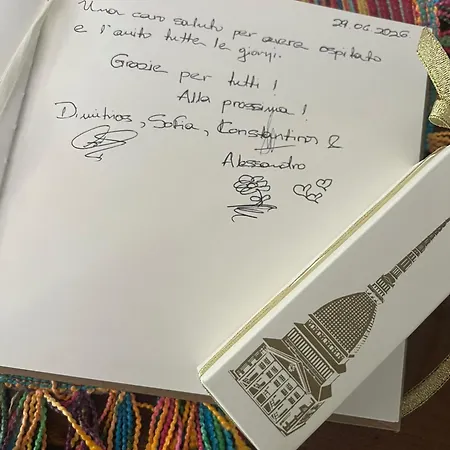 Una caro saluto per avere ospitato 29.06.2025
e l'aiuto tutte le giorni.
Grazie per tutti!
Alla prossima!
Dimitrios, Sofia, Constantinos &
Alessandro